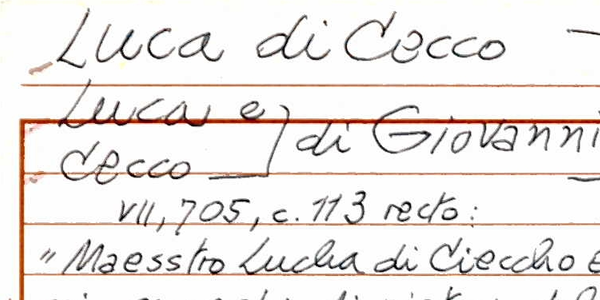 Luca di Cecco
Luca e
Cecco
di Giovanni
VII, 705, c. 113 recto:
"Maesstro Lucha di Cieccho e